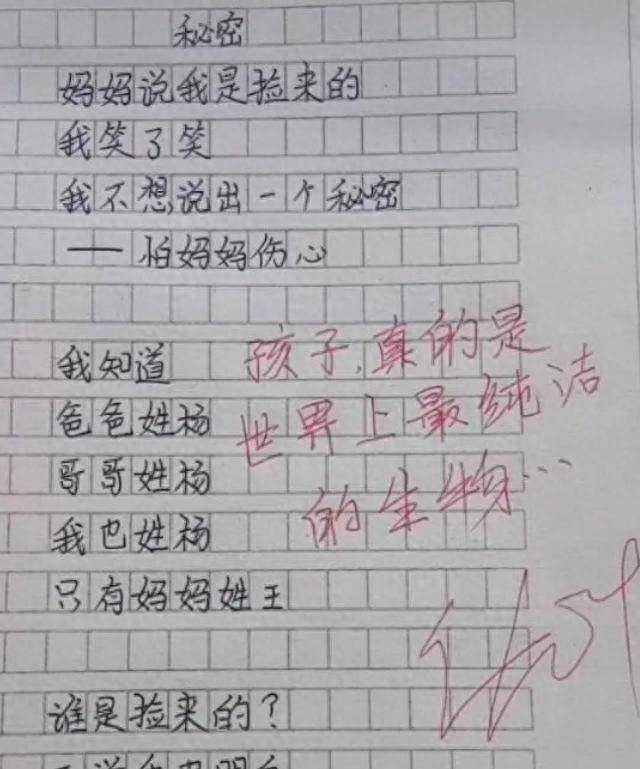 秘密
妈妈说我是捡来的
我笑了笑
我不想说出一个秘密
——怕妈妈伤心
我知道
爸爸姓杨
哥哥姓杨
我也姓杨
只有妈妈姓王
谁是捡来的？
孩子,真的是
世界上最纯洁
的生物…